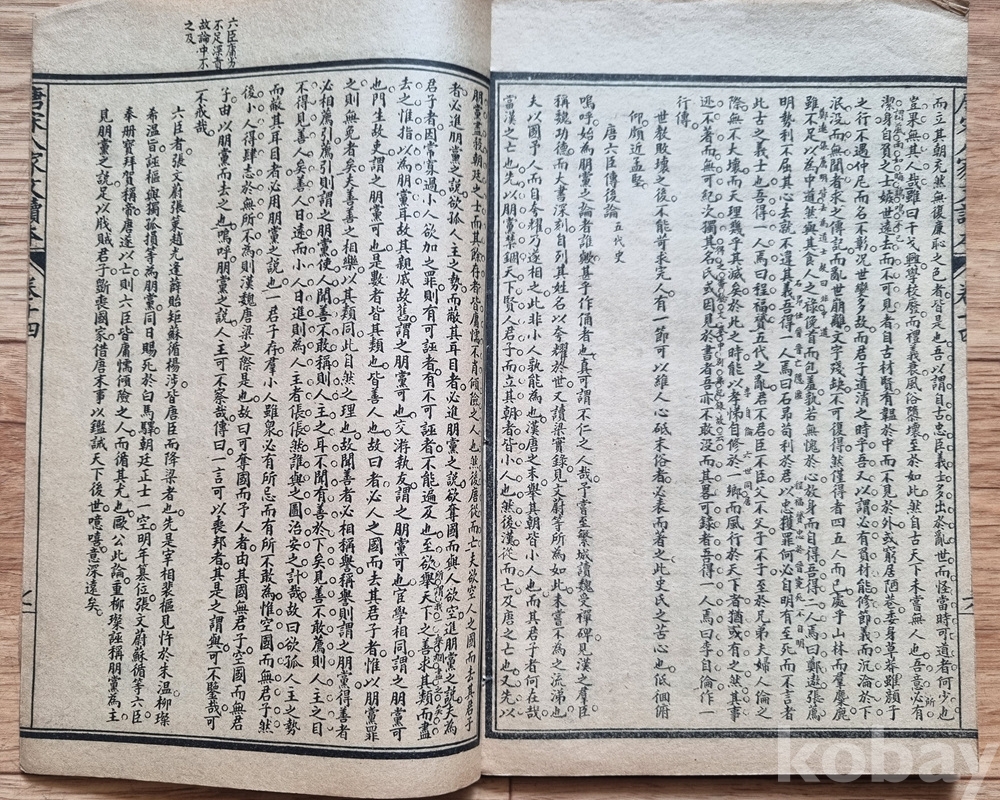 而立其朝充然無復廉恥之色者皆是也吾以謂自古忠臣義士多出於亂世而怪當時可道者何少也
豈果無其人哉雖曰干戈興學校廢而禮義衰風俗隳壞至於如此然自古天下未嘗無人也吾意必有
潔身自負之士嫉世遠去而不可見者自古材賢有韞於中而不見於外或窮居陋巷委身草莽雖顏子
之行不遇仲尼而名不彰況世變多故而君子道消之時乎吾又以謂必有負材能修節義而沉淪於下
泯沒而無聞者求之傳記而亂世崩離文字殘缺不可復得然僅得者四五人而已處乎山林而羣麋鹿
雖不足以為中道然與其食人之祿俛首而包羞孰若無愧於心放身而自得吾得二人焉曰鄭遨張薦
明勢利不屈其心去就不違其義吾得一人焉曰石昂苟利於君以忠獲罪何必自明有至死而不言者
此古之義士也吾得一人焉曰程福贇五代之亂君不君臣不臣父不父子不子至於兄弟夫婦人倫之
際無不大壞而天理幾乎其滅矣於此之時能以孝悌自修於一鄉而風行於天下者猶或有之然其事
迹不著而無可紀次獨其名氏或因見於書者吾亦不敢沒而其畧可錄者吾得一人焉曰李自倫作一
行傳
世教敗壞之後不能苛求完人有一節可以維人心砥末俗者必表而著之此史氏之苦心也低徊俯
仰頗近孟堅
唐六臣傳後論 五代史
嗚呼始為朋黨之論者誰歟甚乎作俑者也真可謂不仁之人哉予嘗至繁城讀魏受禪碑見漢之羣臣
稱魏功德而大書深刻自列其姓名以夸耀於世又讀梁實錄見文蔚等所為如此未嘗不為之流涕也
夫以國予人而自夸耀乃遂相之此非小人孰能為也漢唐之末舉其朝皆小人也而其君子者何在哉
當漢之亡也先以朋黨禁錮天下賢人君子而立其朝者皆小人也然後漢從而亡及唐之亡也又先以
朋黨盡殺朝廷之士而其餘存者皆庸懦不肖傾險之人也然後唐從而亡夫欲空人之國而去其君子
者必進朋黨之說欲孤人主之勢而蔽其耳目者必進朋黨之說欲奪國而與人欲空進朋黨之說夫為
君子者固常寡過小人欲加之罪則有可誣者有不可誣者不能遍及也至欲舉天下之善求其類而盡
去之惟指以為朋黨耳故其親戚故舊謂之朋黨可也交游執友謂之朋黨可也宦學相同謂之朋黨可
也門生故吏謂之朋黨可也是數者皆其類也皆善人也故曰者必人之國而去其君子者惟以朋黨罪
之則無免者矣夫善善之相樂以其類同此自然之理也故聞善者必相稱譽稱譽則謂之朋黨得善者
必相薦引薦引則謂之朋黨使人聞善不敢稱則人主之耳不聞有善於下矣見善不敢薦則人主之目
不得見善人矣善人日遠而小人日進則為人主者倀倀然誰與之圖治安之計哉故曰欲孤人主之勢
而蔽其耳目者必用朋黨之說也一君子存羣小人雖衆必有所忌而有所不敢為惟空國而無君子然
後小人得肆志於無所不為則漢魏唐梁之際是也故曰可奪國而予人者由其國無君子空國而無君
子由以朋黨而去之也嗚呼朋黨之說人主可不察哉傳曰一言可以喪邦者其是之謂與可不鑒哉可
不戒哉
六臣者張文蔚張策趙光逢薛貽矩蘇循楊涉皆唐臣而降梁者也先是宰相裴樞見忤於朱溫柳璨
希溫旨誣樞與獨孤損等為朋黨同日賜死於白馬驛朝廷正士一空明年篡位張文蔚蘇循等六臣
奉册寶拜賀稱臣唐遂以亡則六臣皆庸懦傾險之人而循其尤也歐公此論重柳璨誣稱朋黨為主
見朋黨之說足以戕賊君子斷喪國家借唐末事以鑑誡天下後世噫嘻意深遠矣
六臣庸劣
不足深責
故論中不
之及
唐宋八家文讀本 卷十四
kobay